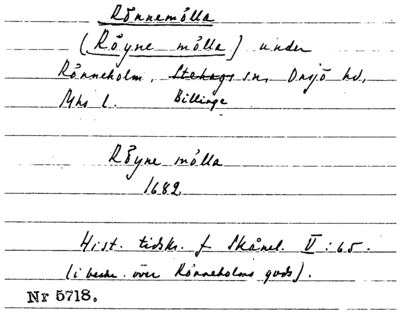 Rönnemölla
(Röyne mölla) under
Rönneholm, Stehags sn, Onsjö hd,
Mhs l. Billinge
Röyne mölla
1682
Hist. tidskr. f Skånel. V:65.
(i beskr. över Rönneholms gods).
Nr 5718.